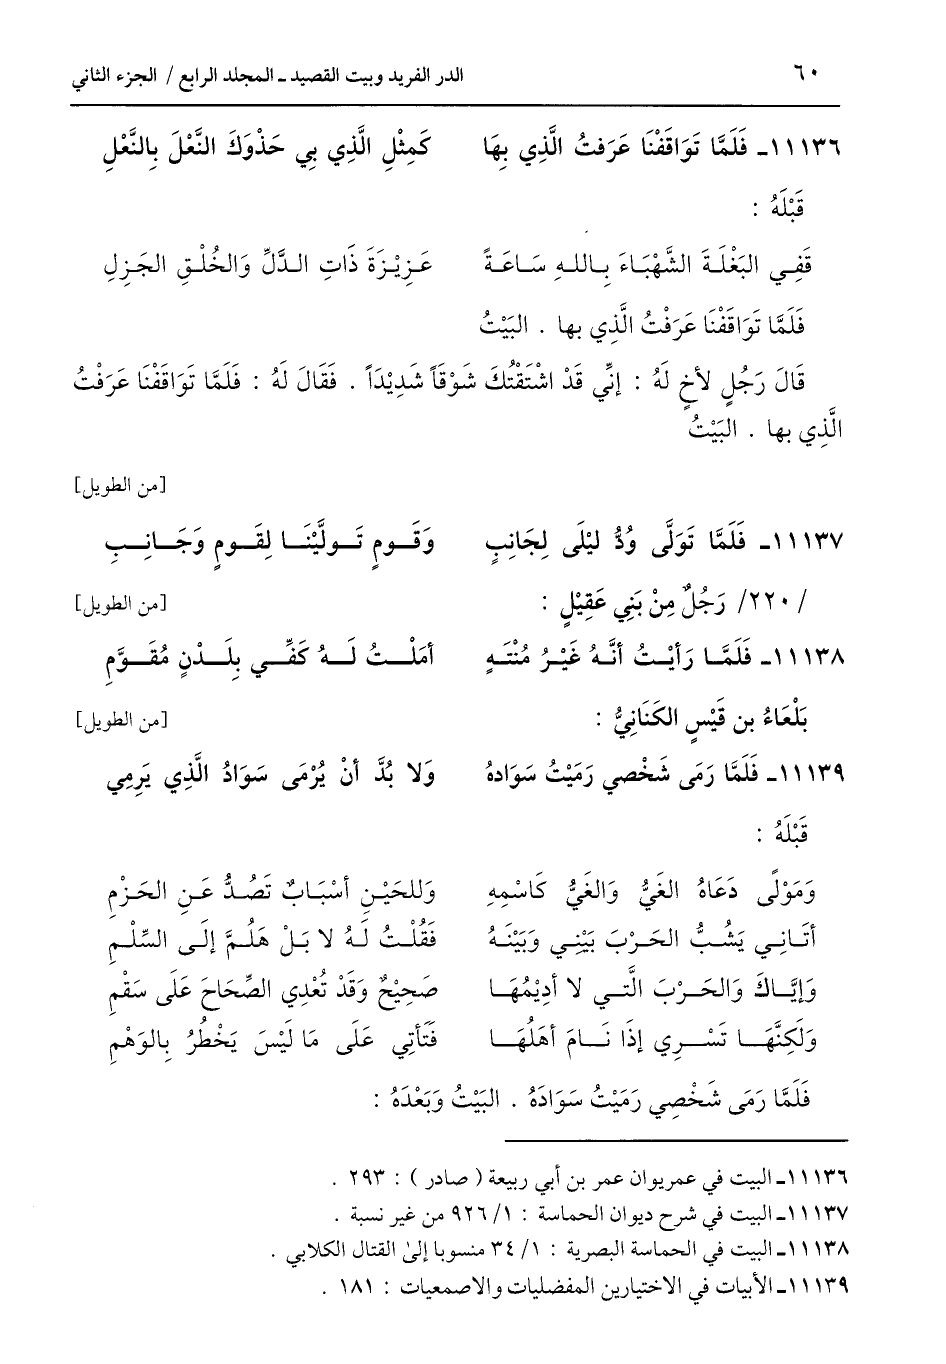 ٦٠ الدر الفريد وبيت القصيد ـ المجلد الرابع / الجزء الثاني
١١١٣٦ـ فَلَمَّا تَوَاقَفْنَا عَرَفتُ الَّذِي بِهَا كَمِثْلِ الَّذِي بِي حَذْوَكَ النَّعْلَ بِالنَّعْلِ
قَبْلَهُ :
قَفِي البَغْلَةَ الشَّهْبَاءَ بِاللهِ سَاعَةً عَزِيْزَةَ ذَاتِ الدَّلِّ وَالخُلْقِ الجَزلِ
فَلَمَّا تَوَاقَفْنَا عَرَفْتُ الَّذِي بها . البَيْتُ
قَالَ رَجُلٍ لأخٍ لَهُ : إنِّي قَدْ اشْتَقْتُكَ شَوْقَاً شَدِيْدَاً . فَقَالَ لَهُ : فَلَمَّا تَوَاقَفْنَا عَرَفْتُ
الَّذِي بها . البَيْتُ
[من الطويل]
١١١٣٧ـ فَلَمَّا تَوَلَّى وُدُّ ليْلَى لِجَانِبٍ وَقَومٍ تَولَّيْنَا لِقَومٍ وَجَانِبِ
/ ٢٢٠/ رَجُلٌ مِنْ بَنِي عَقِيْلٍ : [من الطويل]
١١١٣٨ـ فَلَمَّا رَأيْتُ أنَّهُ غَيْرُ مُنْتَهِ أمَلْتُ لَهُ كَفِّي بِلَدْنٍ مُقَوَّمِ
بَلْعَاءُ بن قَيْسٍ الكَنَانِيُّ : [من الطويل]
١١١٣٩ـ فَلَمَّا رَمَى شَخْصِي رَمَيْتُ سَوَادهُ وَلا بُدَّ أنْ يُرْمَى سَوَادُ الَّذِي يَرمِي
قَبْلَهُ :
وَمَوْلًى دَعَاهُ الغَيُّ وَالغَيُّ كَاسْمِهِ وَللحَيْنِ أسْبَابٌ تَصُدُّ عَنِ الحَزْمِ
أتَانِي يَشُبُّ الحَرْبَ بَيْنِي وَبَيْنَهُ فَقُلْتُ لَهُ لا بَلْ هَلُمَّ إلَى السِّلْمِ
وَإيَّاكَ وَالحَرْبَ الَّتي لا أدِيْمُهَا صَحِيْحٌ وَقَدْ تُعْدِي الصِّحَاحَ عَلَى سَقْمِ
وَلَكِنَّهَا تَسْرِي إذَا نَامَ أهَلُهَا فَتَأتِي عَلَى مَا لَيْسَ يَخْطُرُ بِالوَهْمِ
فَلَمَّا رَمَى شَخْصِي رَمَيْتُ سَوَادَهُ . البَيْتُ وَبَعْدَهُ :
١١١٣٦ـ البيت في عمريوان عمر بن أبي ربيعة ( صادر ) : ٢٩٣ .
١١١٣٧ـ البيت في شرح ديوان الحماسة : ١/ ٩٢٦ من غير نسبة .
١١١٣٨ـ البيت في الحماسة البصرية : ١/ ٣٤ منسوبا إلىٰ القتال الكلابي .
١١١٣٩ـ الأبيات في الاختيارين المفضليات والاصمعيات : ١٨١ .